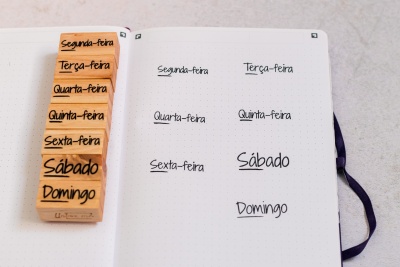 Segunda-feira
Terça-feira
Quarta-feira
Quinta-feira
Sexta-feira
Sábado
Domingo
Segunda-feira
Terça-feira
Quarta-feira
Quinta-feira
Sexta-feira
Sábado
Domingo